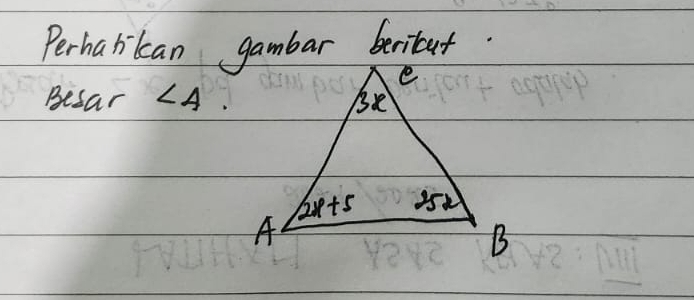 Perhatikan gambar berikut .
Besar ∠A .
C
3x
2x+5
25x
A
B